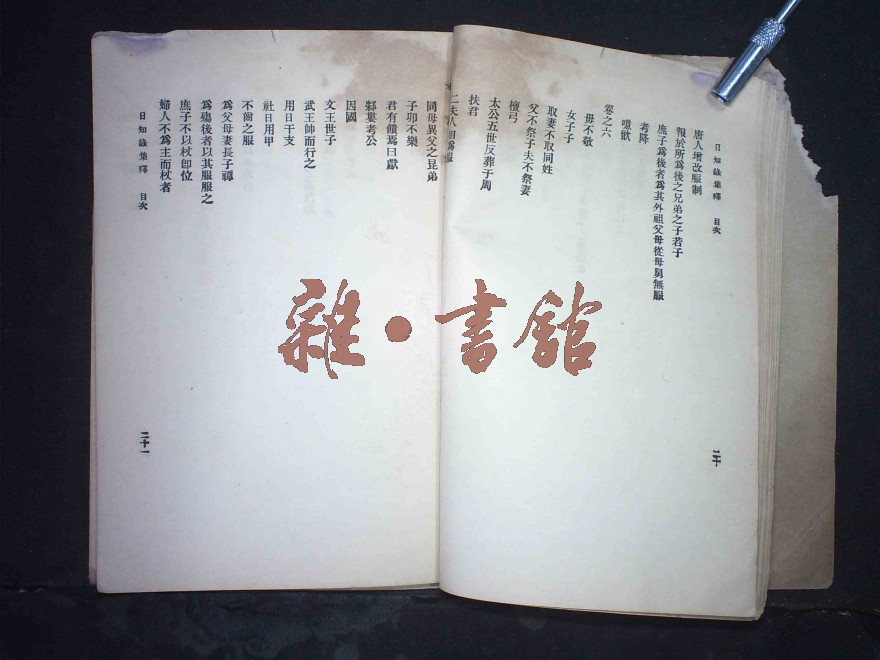 日知錄集釋 目次
唐人增改服制
報於所爲後之兄弟之子若子
庶子爲後者爲其外祖父母從母舅無服
考降
噫歆
卷之六
毋不敬
女子子
取妻不取同姓
父不祭子夫不祭妻
檀弓
太公五世反葬于周
扶君
二夫人相爲服
二十
同母異父之昆弟
子卯不樂
君有饋焉曰獻
邾婁考公
因國
文王世子
武王帥而行之
用日干支
社日用甲
不齒之服
爲父母妻長子禫
爲殤後者以其服服之
庶子不以杖卽位
婦人不爲主而杖者
日知錄集釋 目次
二十一
雜·書館